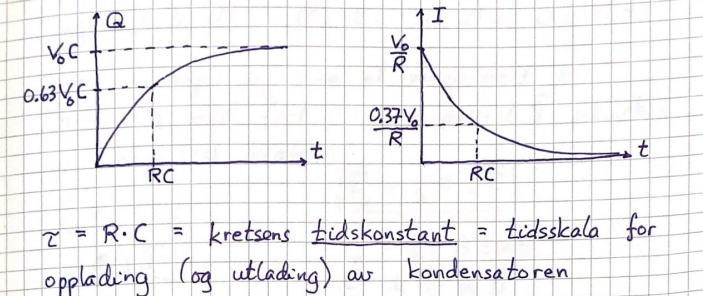 Q
V₀C
0.63V₀C
t
RC
I
V₀/R
0.37V₀/R
t
RC
τ = R·C = kretsens tidskonstant = tidsskala for
opplading (og utlading) av kondensatoren